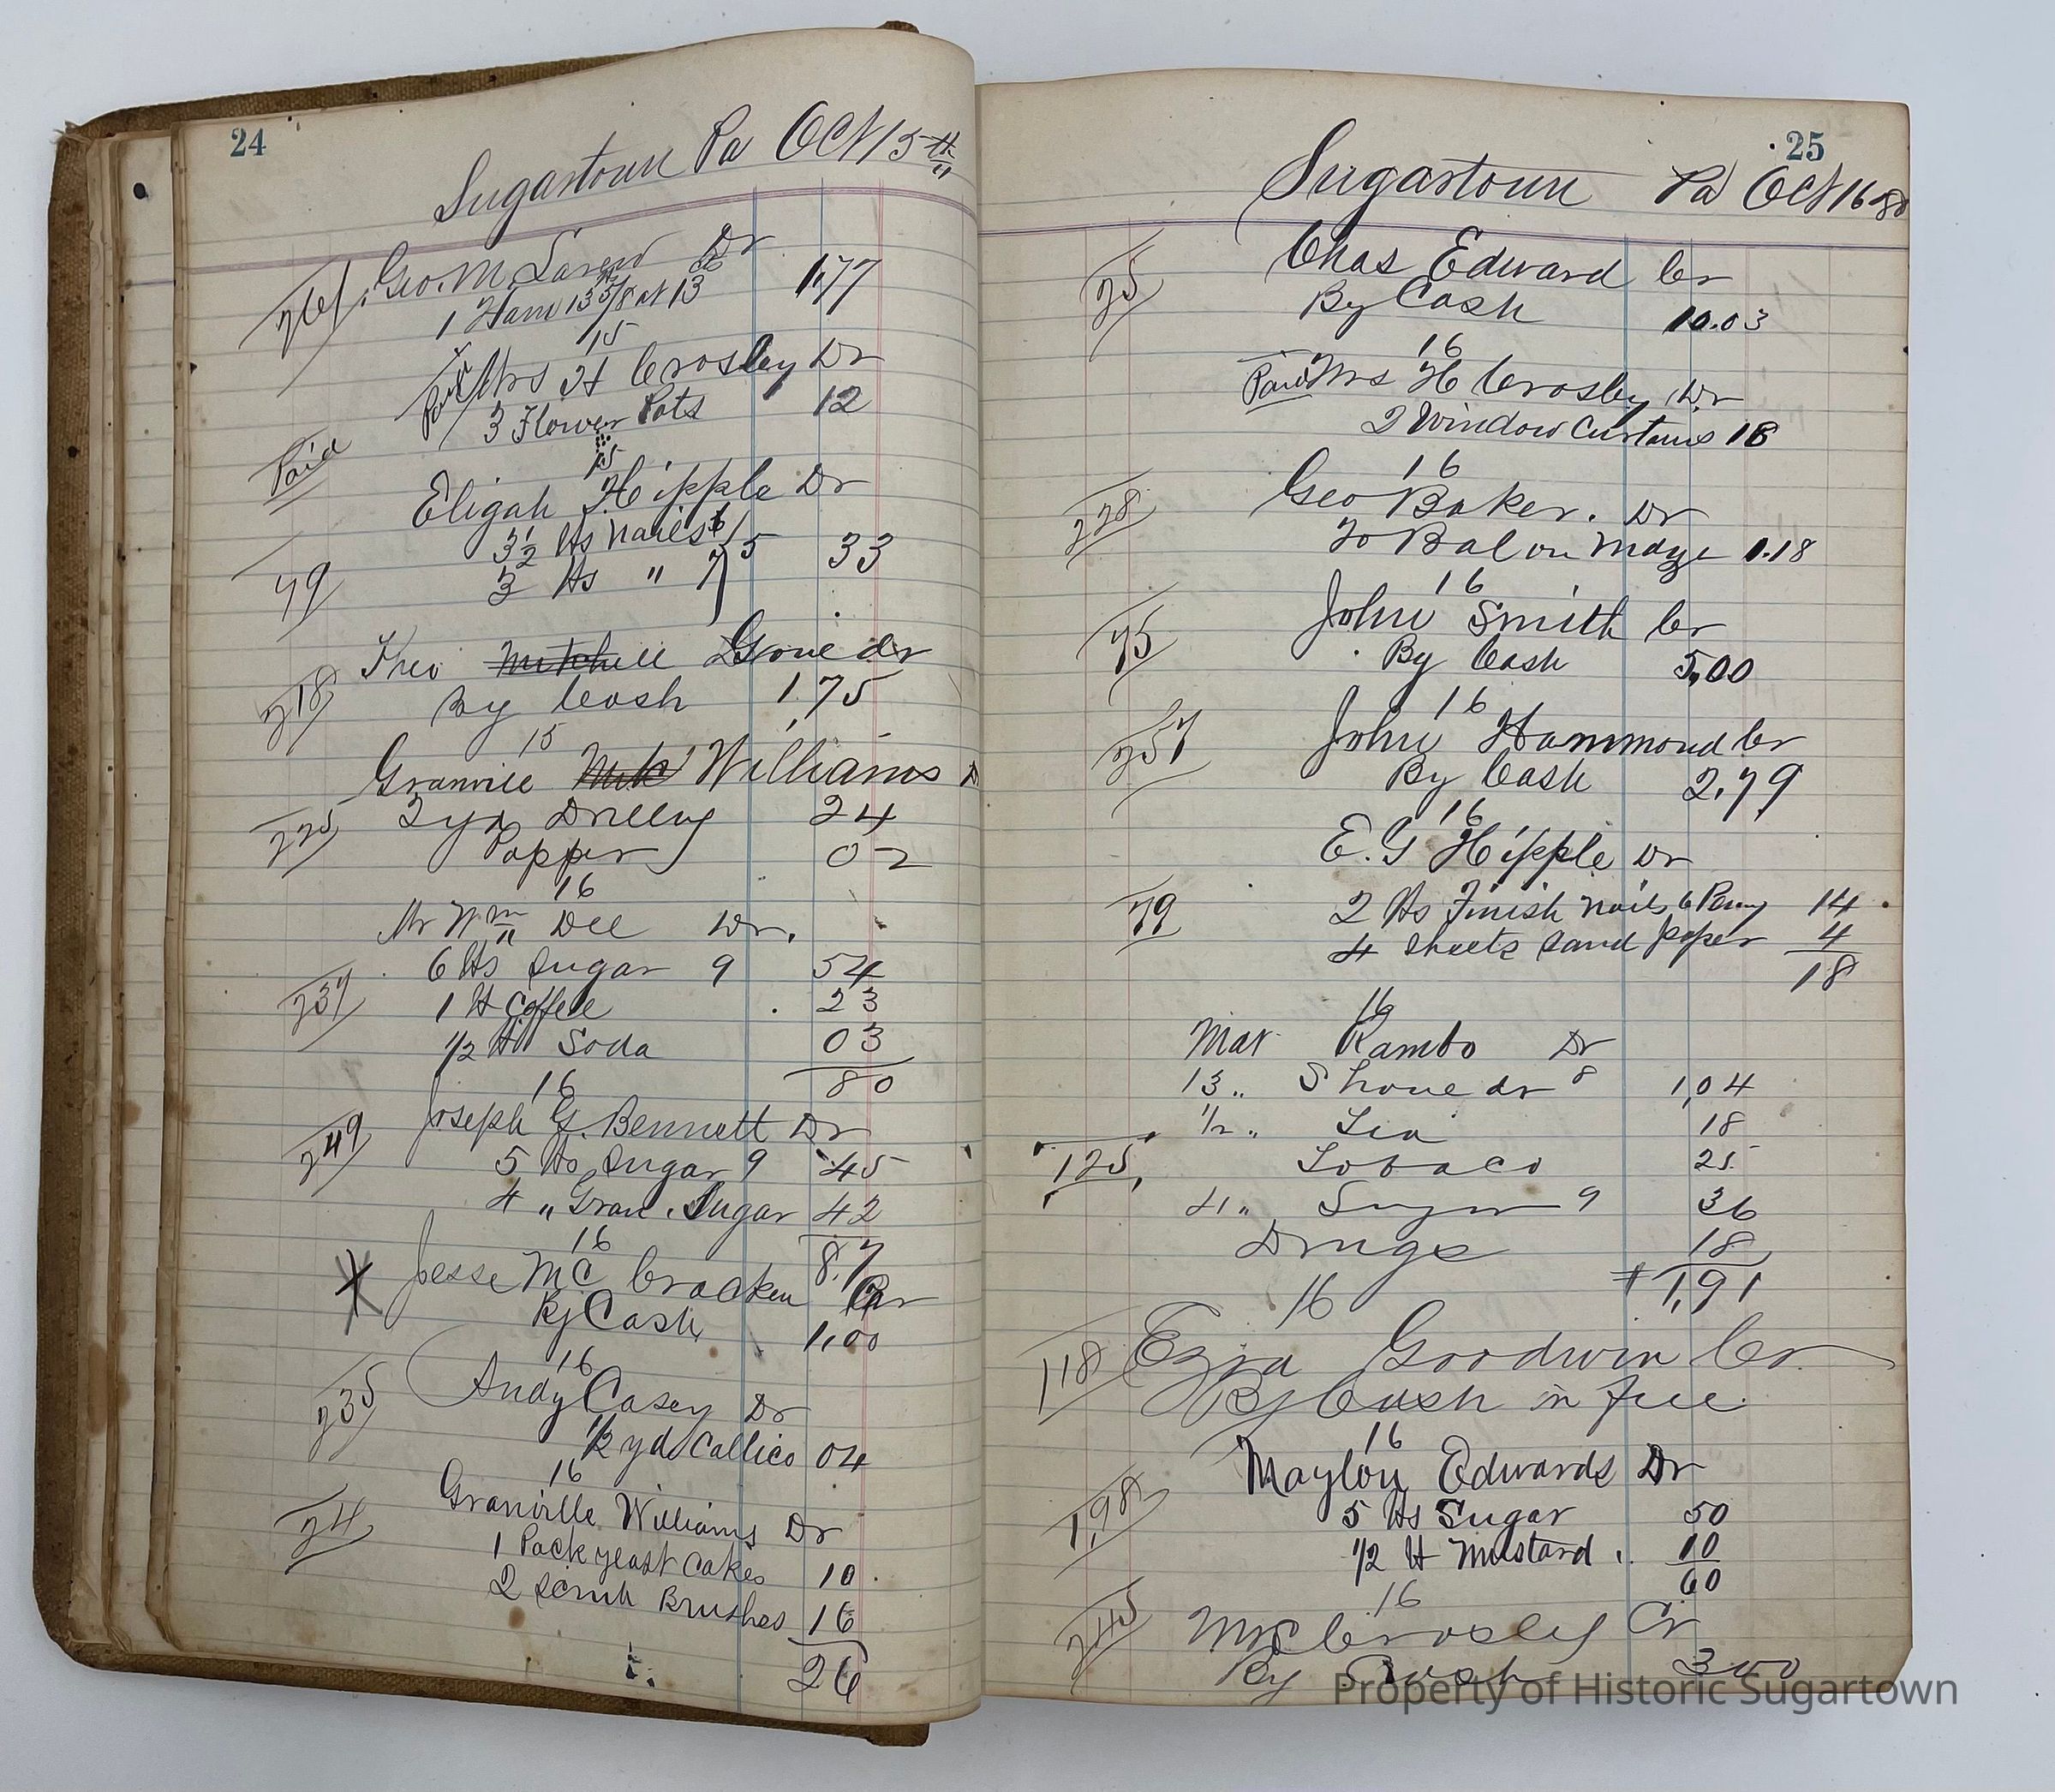 24
Sugartown Pa Oct 15th
261 Geo. M. Dr
1 Ham 13 5/8 at 13 1.77
15
Paid Mrs H Crosley Dr
3 Flower Pots 12
Paid
15
Eligah Hipple Dr
3 1/2 lbs nails 6
3 lbs " 7 5 33
79
Theo Mitchell Grove dr
218 By Cash 1.75
15
Granvile Williams D
225 2 yds Drilling 24
Popper 02
16
Mr Wm Dee Dr.
6 lbs Sugar 9 54
237 1 lb Coffee 23
1/2 lb Soda 03
80
16
249 Joseph G. Bennett Dr
5 lbs Sugar 9 45
4 " Gran. Sugar 42
8.7
16
Jesse McCracken Cr
By Cash 1.00
16
235 Andy Casey Dr
1/2 yd Callico 04
16
24 Granville Williams Dr
1 Pack yeast Cakes 10
2 Scrub Brushes 16
26
25
Sugartown Pa Oct 16 80
25 Chas Edward Cr
By Cash 10.03
16
Paid Mrs H Crosley Dr
2 Window Curtains 18
16
228 Geo Baker. Dr
To Bal on 1.18
16
75 John Smith Cr
By Cash 5,00
16
257 John Hammond Cr
By Cash 2,79
16
E. G Hipple Dr
79 2 lbs Finish nails 6 Penny 14
4 Sheets Sand paper 4
18
16
Mar Rambo Dr
13 " Shouedr 8 1,04
1/2 " Tea 18
125 Tobaco 25
4 " Sugar 9 36
Drugs 18
1,91
16
118 Ezra Goodwin Cr.
By Cash in full
16
198 Maylon Edwards Dr
5 lbs Sugar 50
1/2 lb Mustard 10
60
16
245 Crosley Cr
By Cash 300
Property of Historic Sugartown